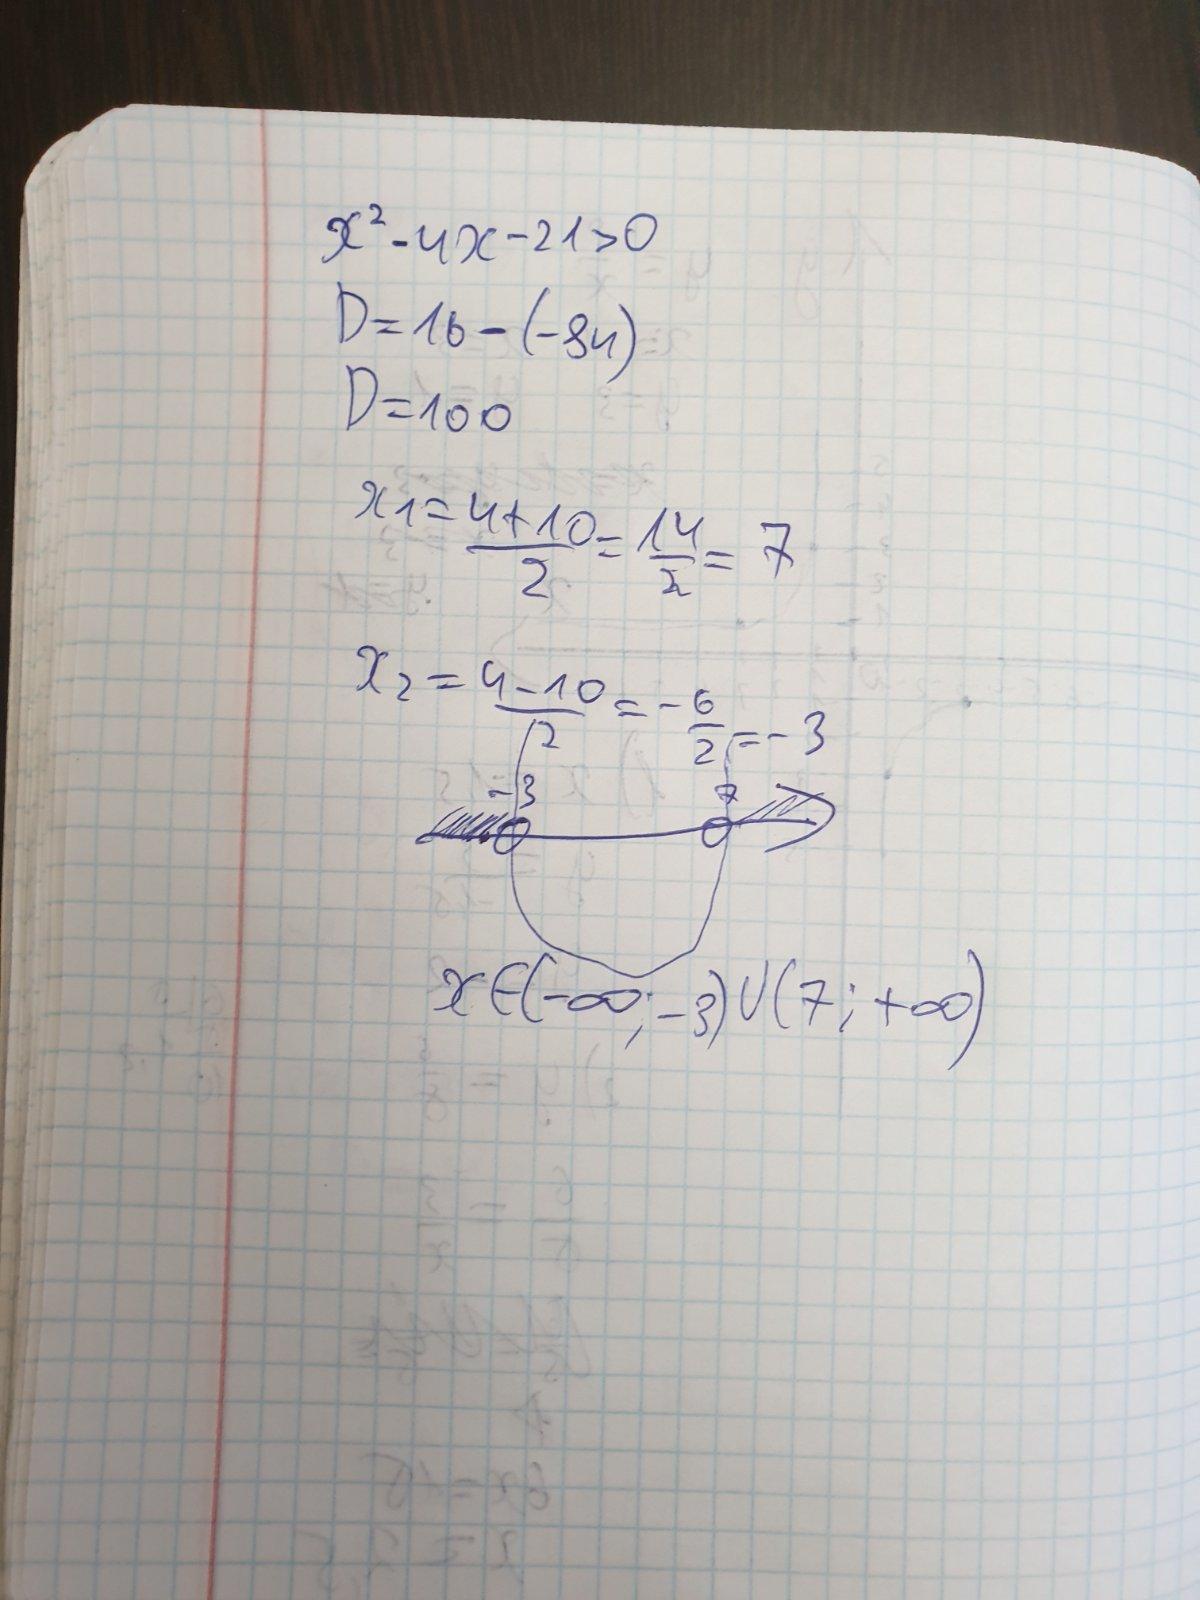 x² - 4x - 21 > 0
D = 16 - (-84)
D = 100
x1 = 4+10/2 = 14/2 = 7
x2 = 4-10/2 = -6/2 = -3
-3 7
x ∈ (-∞; -3) ∪ (7; +∞)